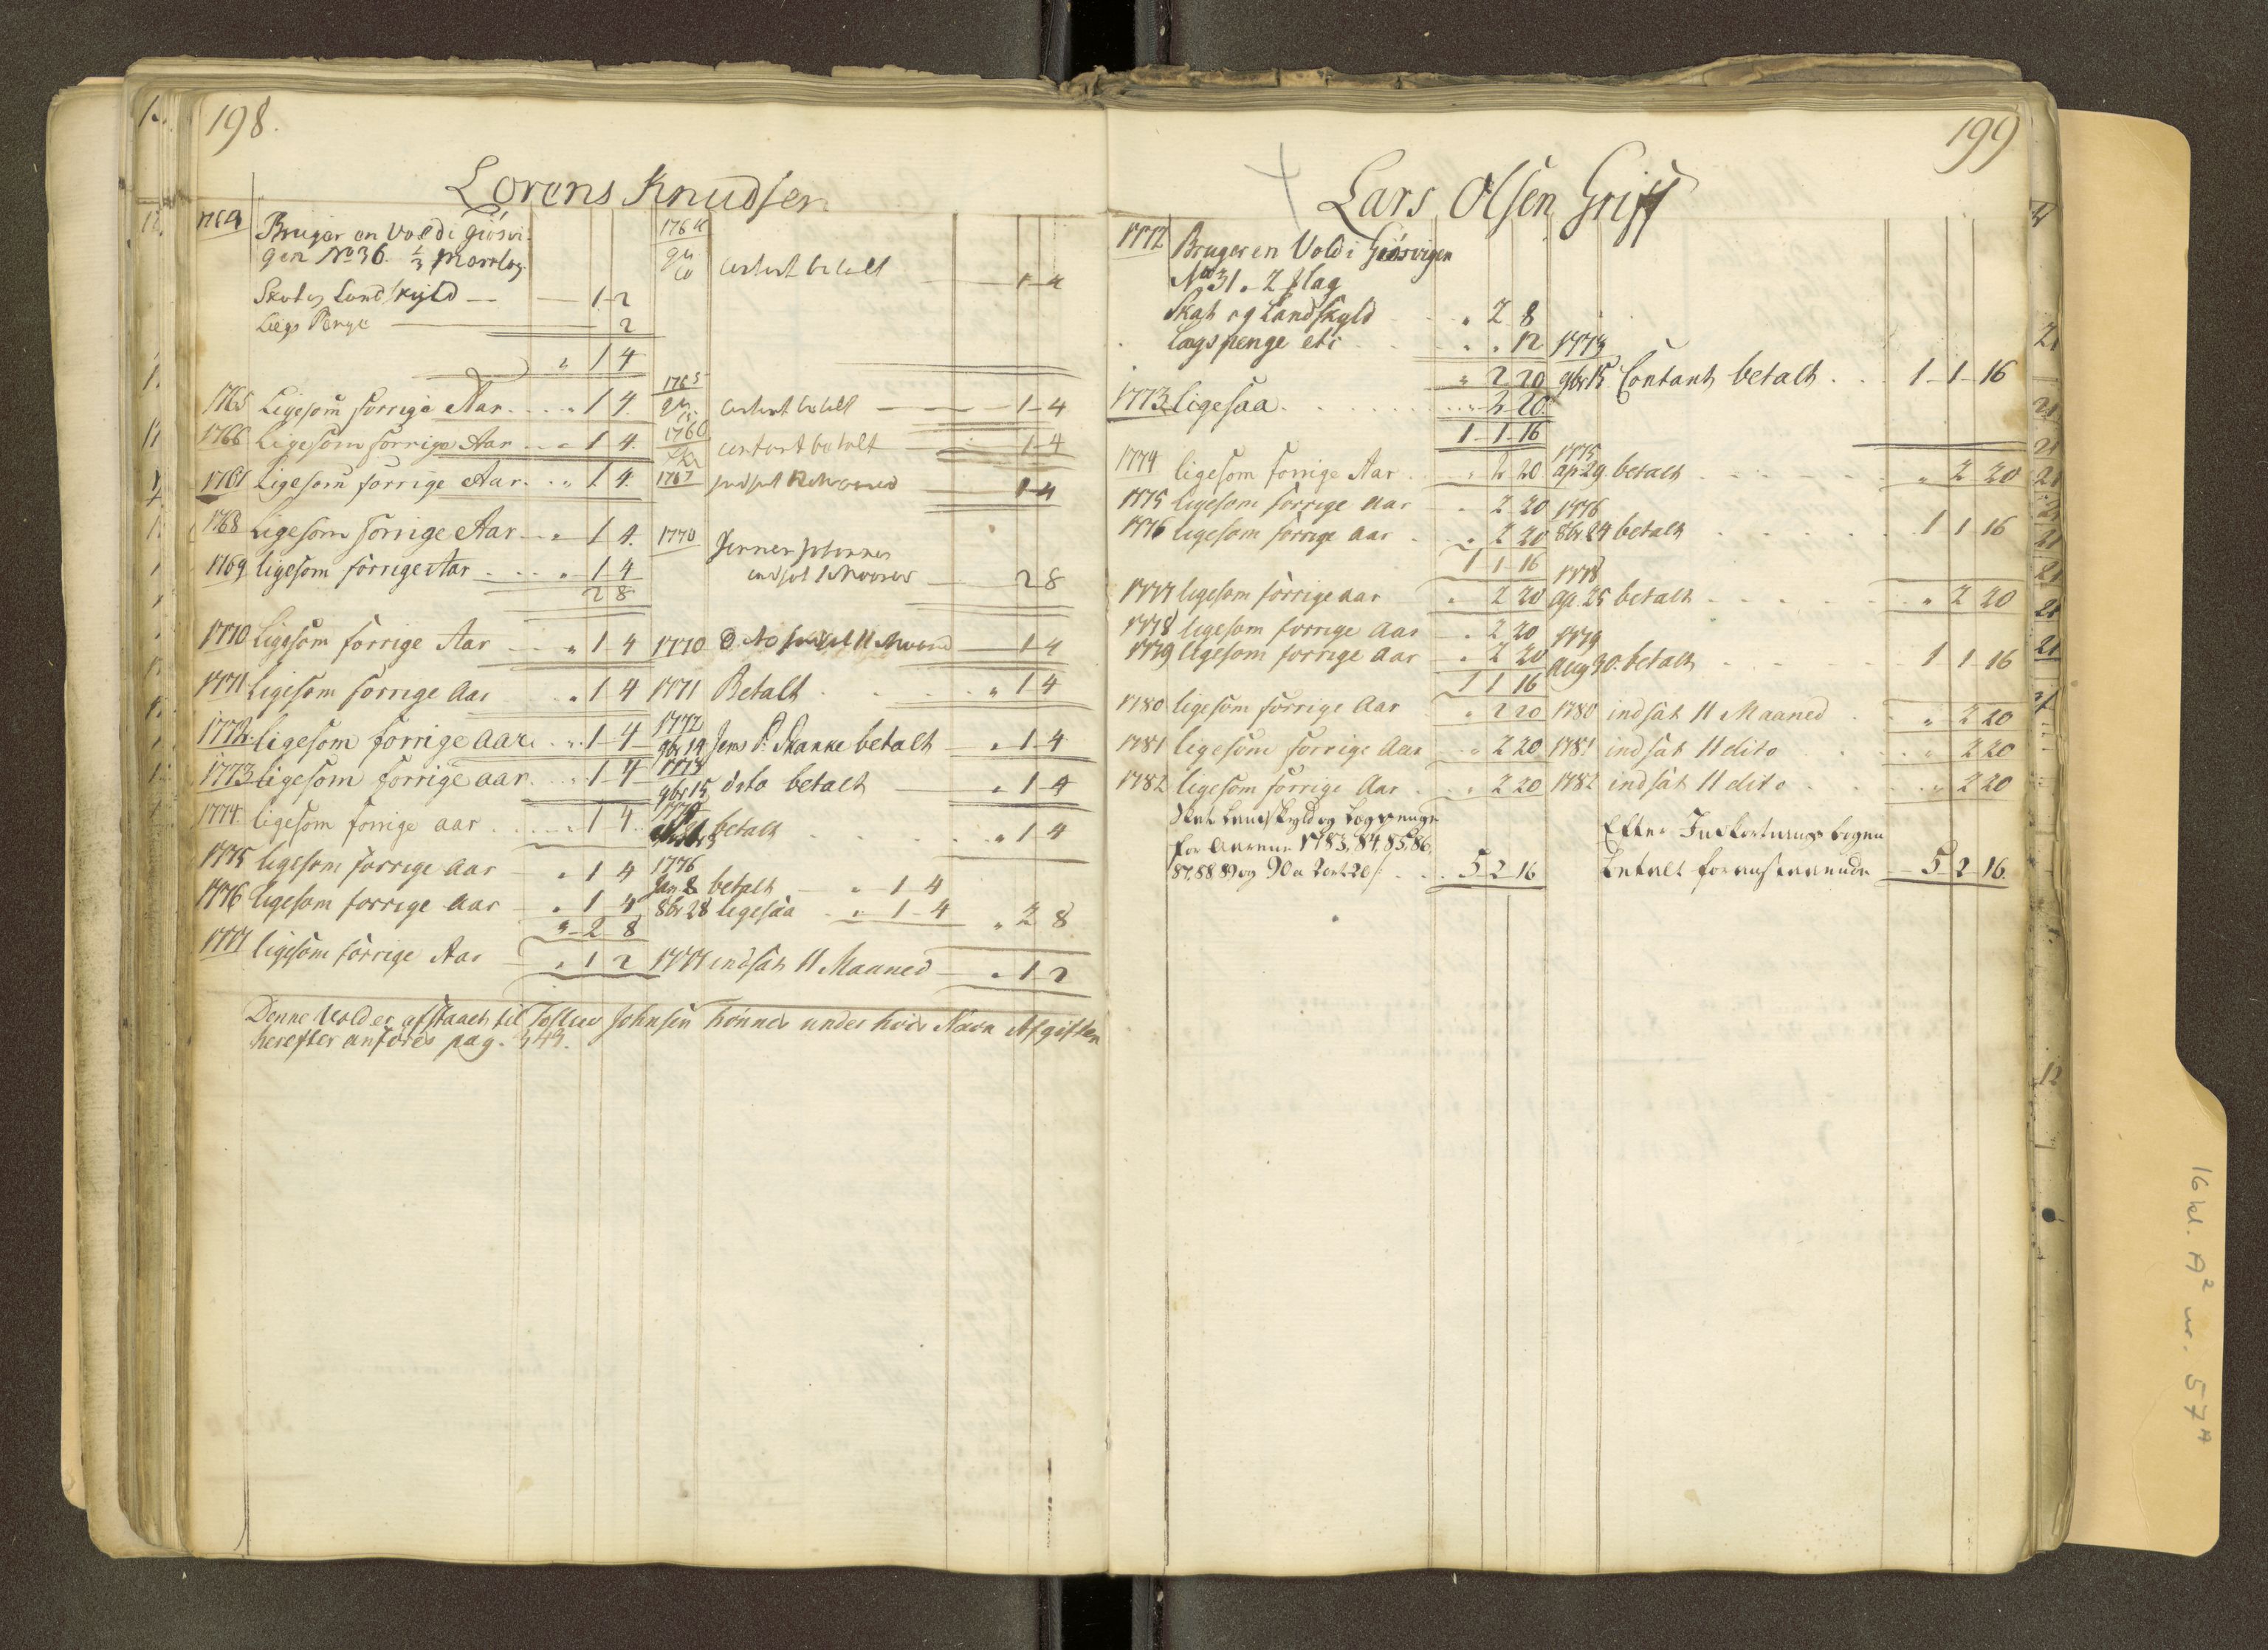 198.
Lorens Knudsen
1764 Bruger en Vold i giösvi-
gen No 36. 1/3 Marrlag
Skat og Landskyld — — 1 2
Legs Penge — 2
" 1 4
1765 Ligesom forrige Aar . . . " 1 4.
1766 Ligesom forrige Aar . . " 1 4.
1767 Ligesom forrige Aar . . " 1 4.
1768 Ligesom forrige Aar . . " 1 4.
1769 ligesom forrige Aar . . . " 1 4
2 8
1770 ligesom forrige Aar " 1 4
1771 ligesom forrige Aar " 1 4
1772 ligesom forrige aar . " 1 4
1773 ligesom forrige aar . . " 1 4
1774 ligesom forrige aar . . . " 1 4
1775 ligesom forrige Aar " 1 4
1776 ligesom forrige Aar " 1 4
" 2 8
1777 ligesom forrige Aar " 1 2
1764
contant betalt 1 4
1765
contant betalt — 1-4
1766
contant betalt 1-4
1767 indsat 12 Maaned 1 4
1770
indsat Maaned 2 8
1770 Dito indsat 11 Maaned 1 4
1771 Betalt . . . . " 1 4
1772
9br 19 Jens P. Skanke betalt " 1 4
1773
9br 15 dito betalt " 1 4
betalt . . . . . " 1 4
1776
Jan 8 betalt — " 1 4
8br 28 ligesaa " 1-4 " 2 8
1777 indsat 11 Maaned " 1 2
Denne Vold er afstaaet til Tosten Johnsen Rönnes under hvis Navn Afgiften
herefter anföres pag. 249.
199
Lars Olsen Griff
1772 Bruger en Vold i Giösvigen
No 31 . 2 Slag
Skat og Landskyld " 2 8
Lægspenge etc . . " " 12
" 2 20
1773 ligesaa . . . . . " 2 20
1-1-16
1774 ligesom forrige Aar . . " 2 20
1775 ligesom forrige aar " 2 20
1776 ligesom forrige aar . " 2 20
1 1 16
1777 ligesom forrige aar " 2 20
1778 ligesom forrige Aar " 2 20
1779 ligesom forrige Aar " 2 20
1 1 16
1780 ligesom forrige Aar " 2 20
1781 ligesom forrige Aar " 2 20
1782 ligesom forrige Aar . . " 2 20
Skat Landskyld og Lægspenge
for Aarene 1783, 84, 85, 86,
87, 88 89 og 90 a 2 ort 20 ʃ . . . 5 2 16
1773
9br 15 Contant betalt . . . 1-1-16
1775
Ap 29. betalt . . . . . " 2 20
1776
8br 24 betalt . . . . . . 1 1 16
1778
Ap 25 betalt . . . . . " 2 20
1779
Aug 30. betalt . . . . . 1 1 16
1780 indsat 11 Maaned . . " 2 20
1781 indsat 11 dito . . . " 2 20
1782 indsat 11 dito . . . " 2 20
Efter Indkortnings bogen
betalt foranstaaende 5 2 16.
16 kl. A² nr. 57ᴬ